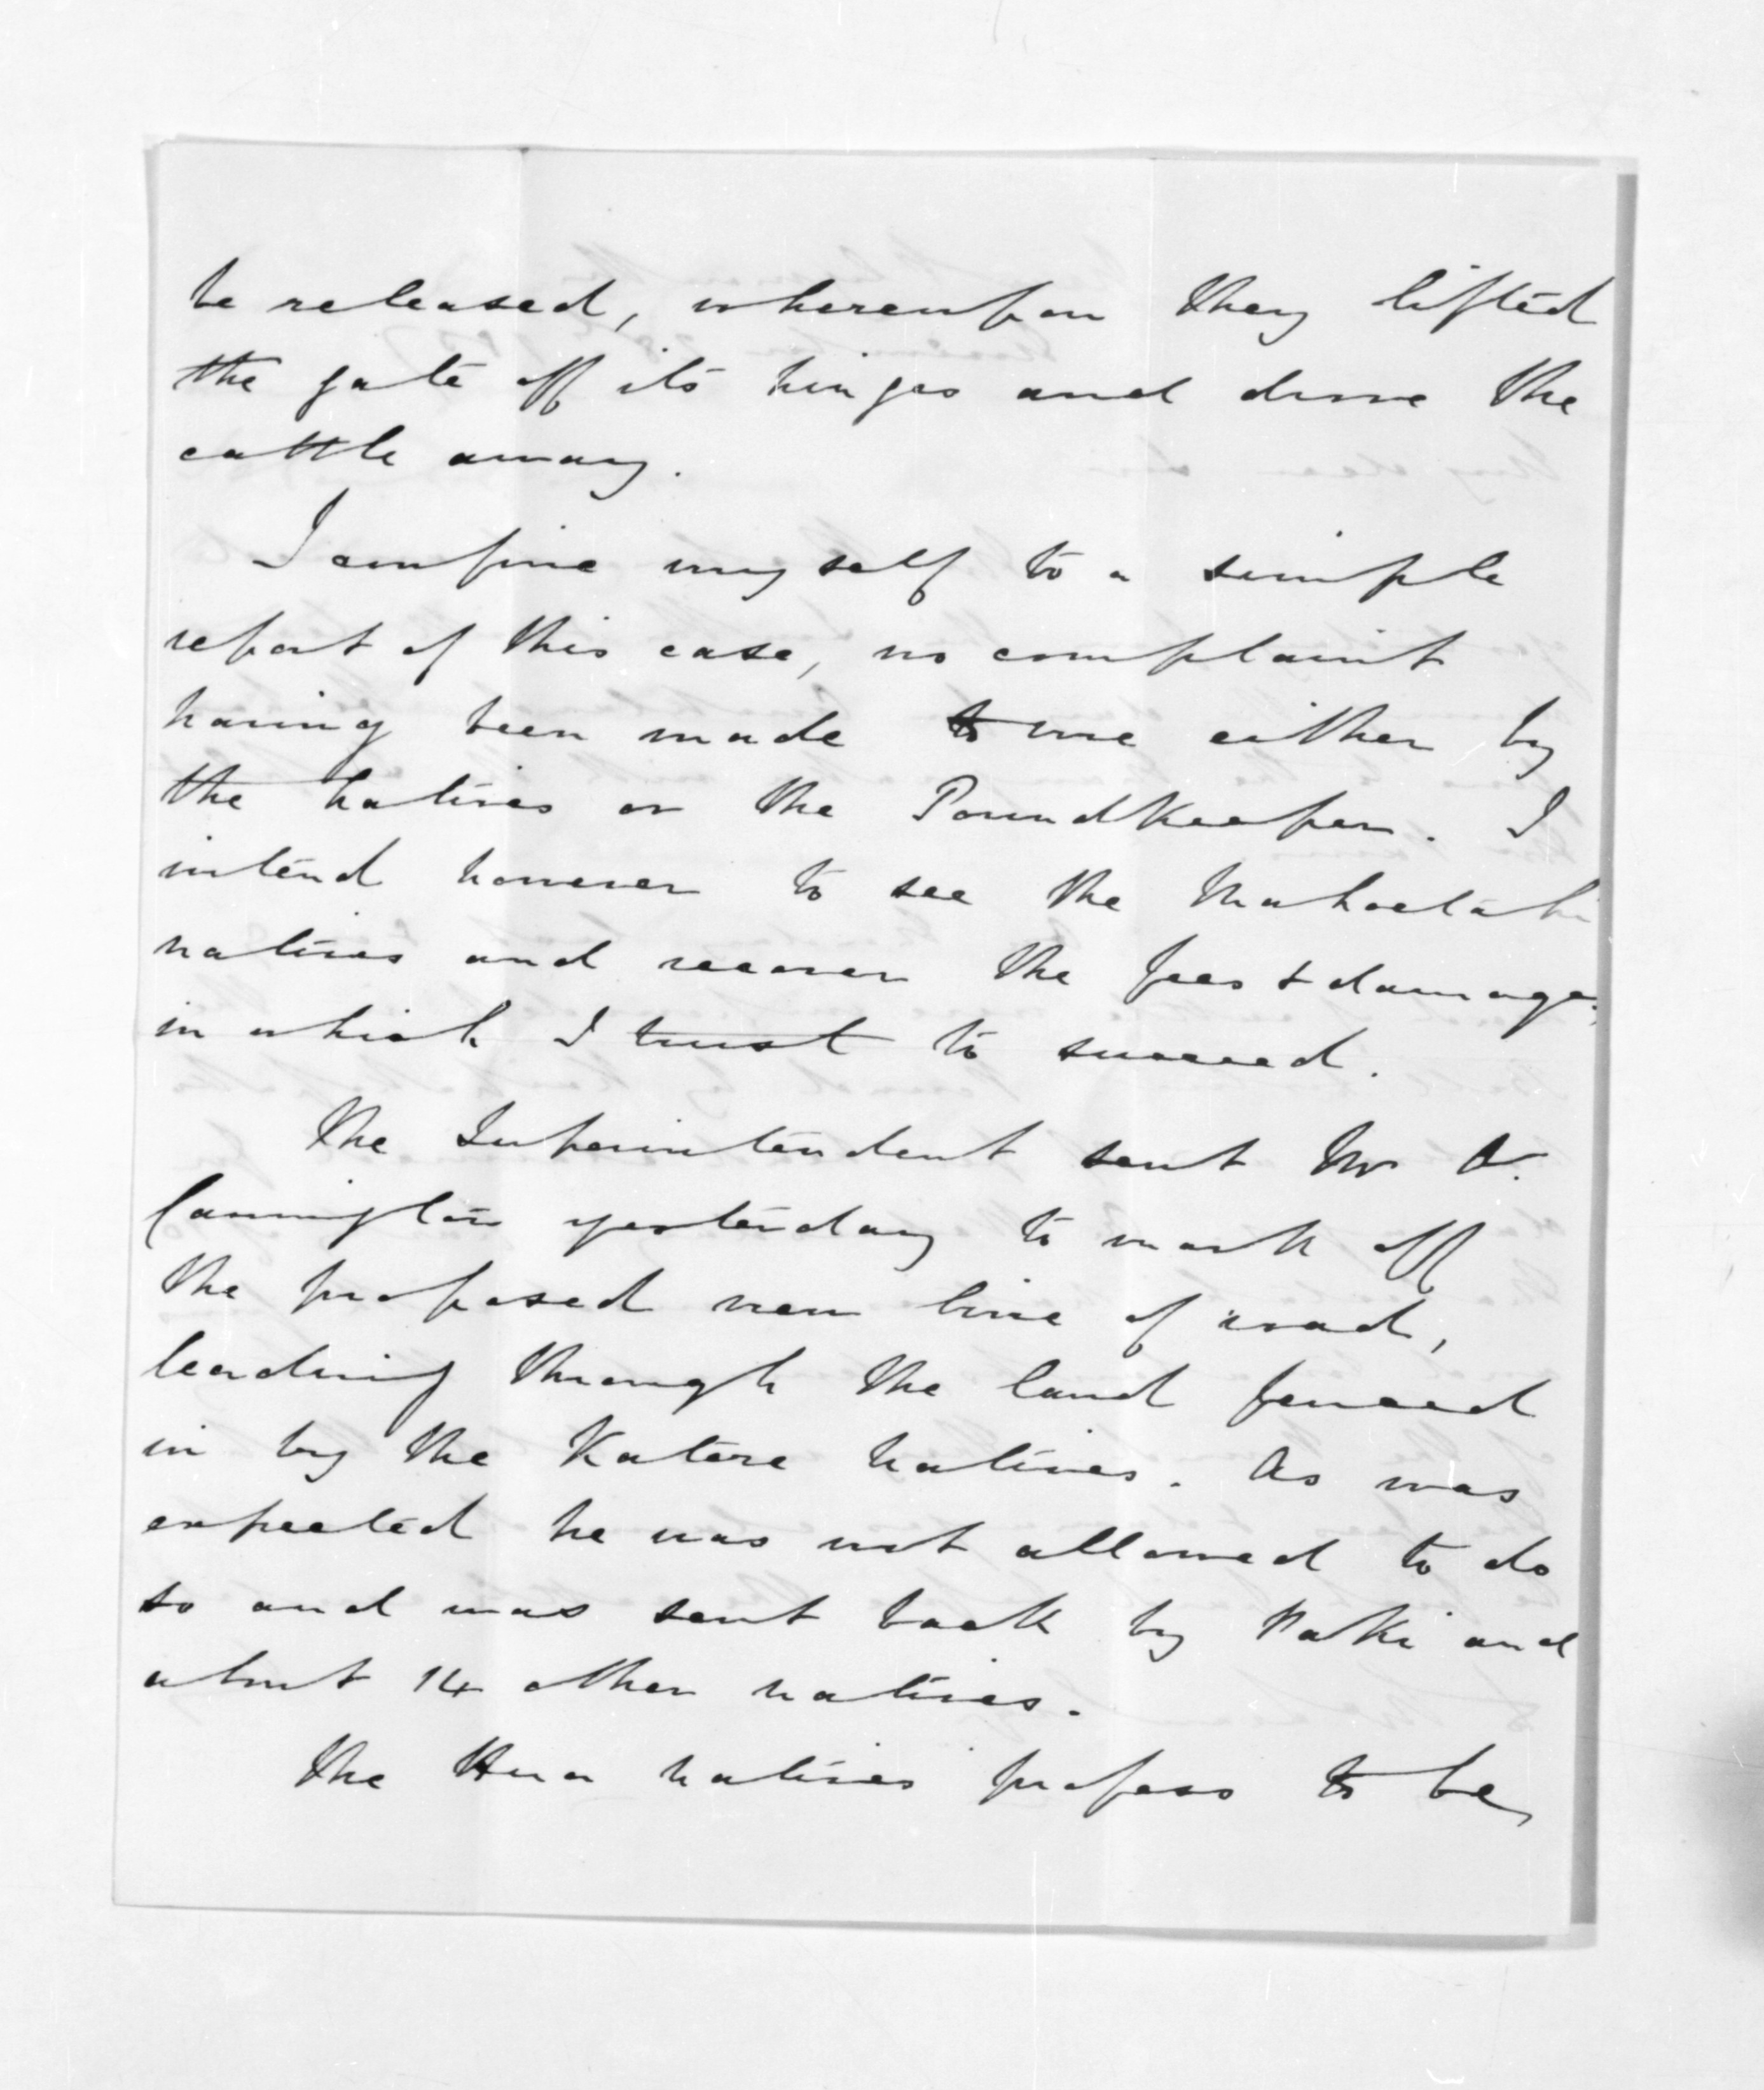 be released, whereupon they lifted
the gate off its hinges and drove the
cattle away.
I confine myself to a simple
report of this case, no complaint
having been made to me either by
the natives or the PoundKeeper. I
intend however to see the Mahoetahi
natives and recover the fees & damages,
in which I trust to succeed.
The Superintendent sent Mr O.
Carrington yesterday to mark off
the proposed new line of road,
leading through the land fenced
in by the Katere natives. As was
expected he was not allowed to do
so and was sent back by Paki and
about 14 other natives.
The Hua natives profess to be